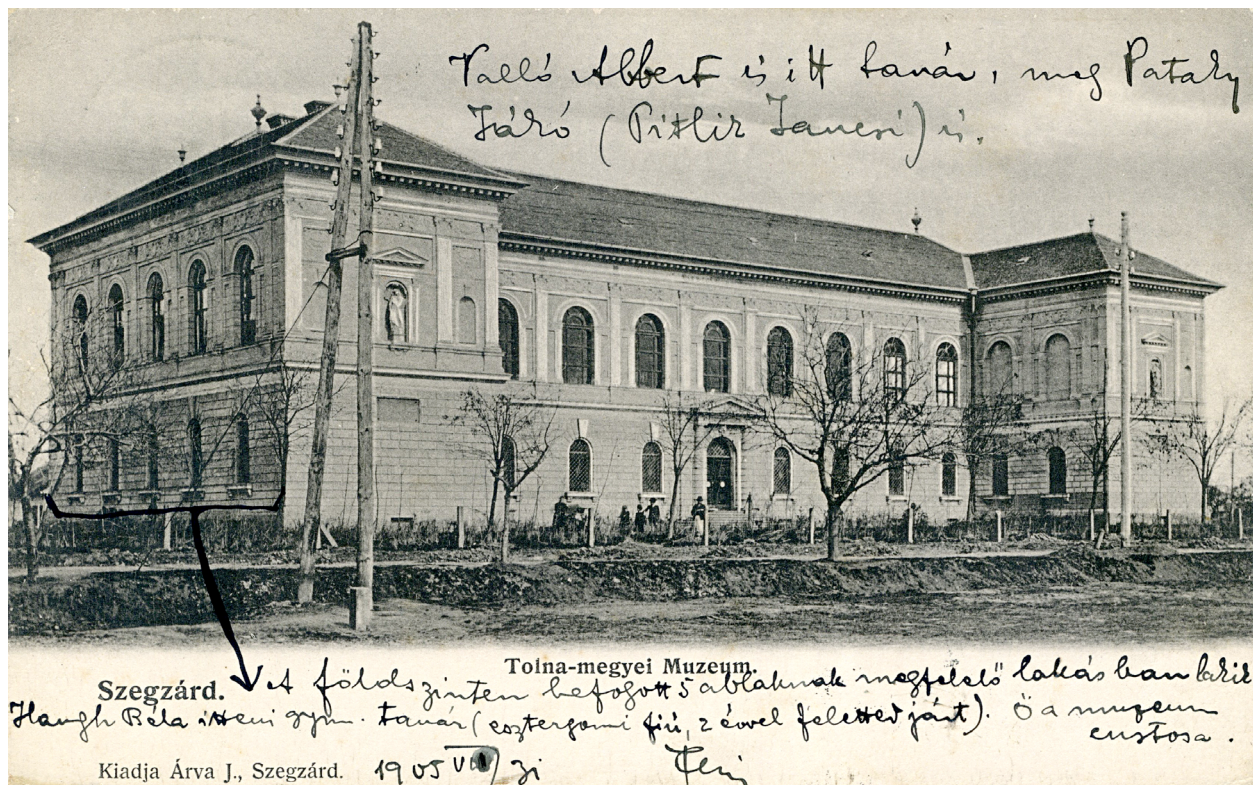 Valló Albert is itt tanár, meg Pataky
Járó (Pitlik Jancsi) is.
Tolna-megyei Muzeum.
Szegzárd.
A földszinten befogott 5 ablaknak megfelelő lakásban lakik
Haugh Béla itteni gymn. tanár (esztergomi fiú, 2 évvel feletted járt). Ő a muzeum
custosa.
Kiadja Árva J., Szegzárd.
1905 VII/31